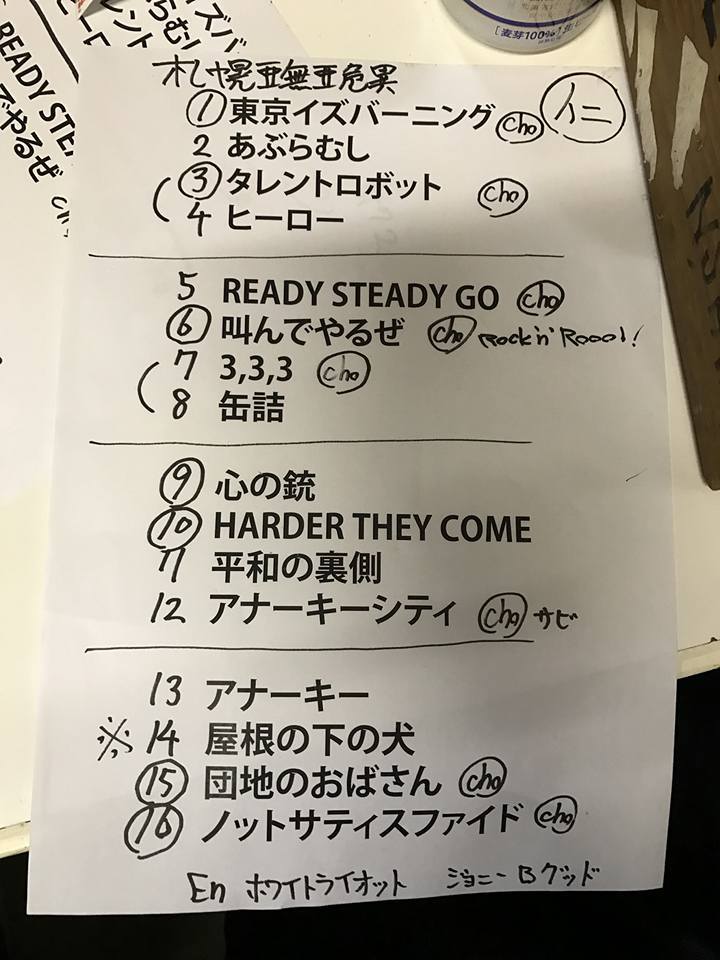 [麦芽100%! 生ビ
READY STEADY
でやるぜ
札幌亜無亜危異
仁
① 東京イズバーニング cho
2 あぶらむし
③ タレントロボット cho
4 ヒーロー
5 READY STEADY GO cho
⑥ 叫んでやるぜ cho Rock'n' Roool!
7 3,3,3 cho
8 缶詰
⑨ 心の銃
⑩ HARDER THEY COME
11 平和の裏側
12 アナーキーシティ cho サビ
13 アナーキー
※ 14 屋根の下の犬
⑮ 団地のおばさん cho
⑯ ノットサティスファイド cho
En ホワイトライオット ジョニーBグッド